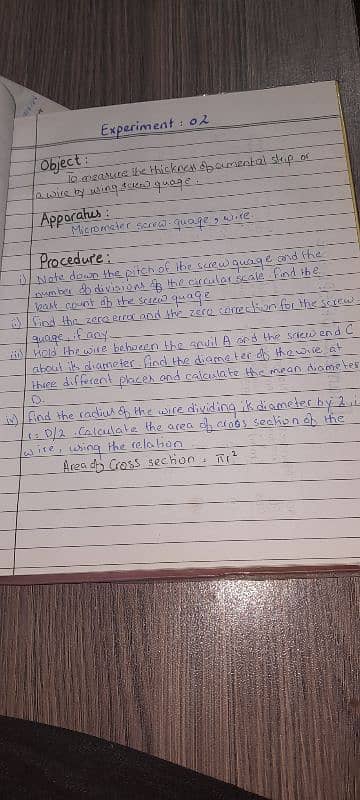 Experiment : 02
Object :
To measure the thickness of a metal strip or
a wire by using screw guage.
Apparatus :
Micrometer screw guage, wire
Procedure :
i) Note down the pitch of the screw guage and the
number of divisions of the circular scale find the
least count of the screw guage
ii) find the zero error and the zero correction for the screw
guage, if any
iii) Hold the wire between the anvil A and the screw end C
about its diameter. find the diameter of the wire at
three different places and calculate the mean diameter
D.
iv) find the radius of the wire dividing its diameter by 2
r = D/2 . Calculate the area of cross section of the
wire, using the relation
Area of Cross section = πr²